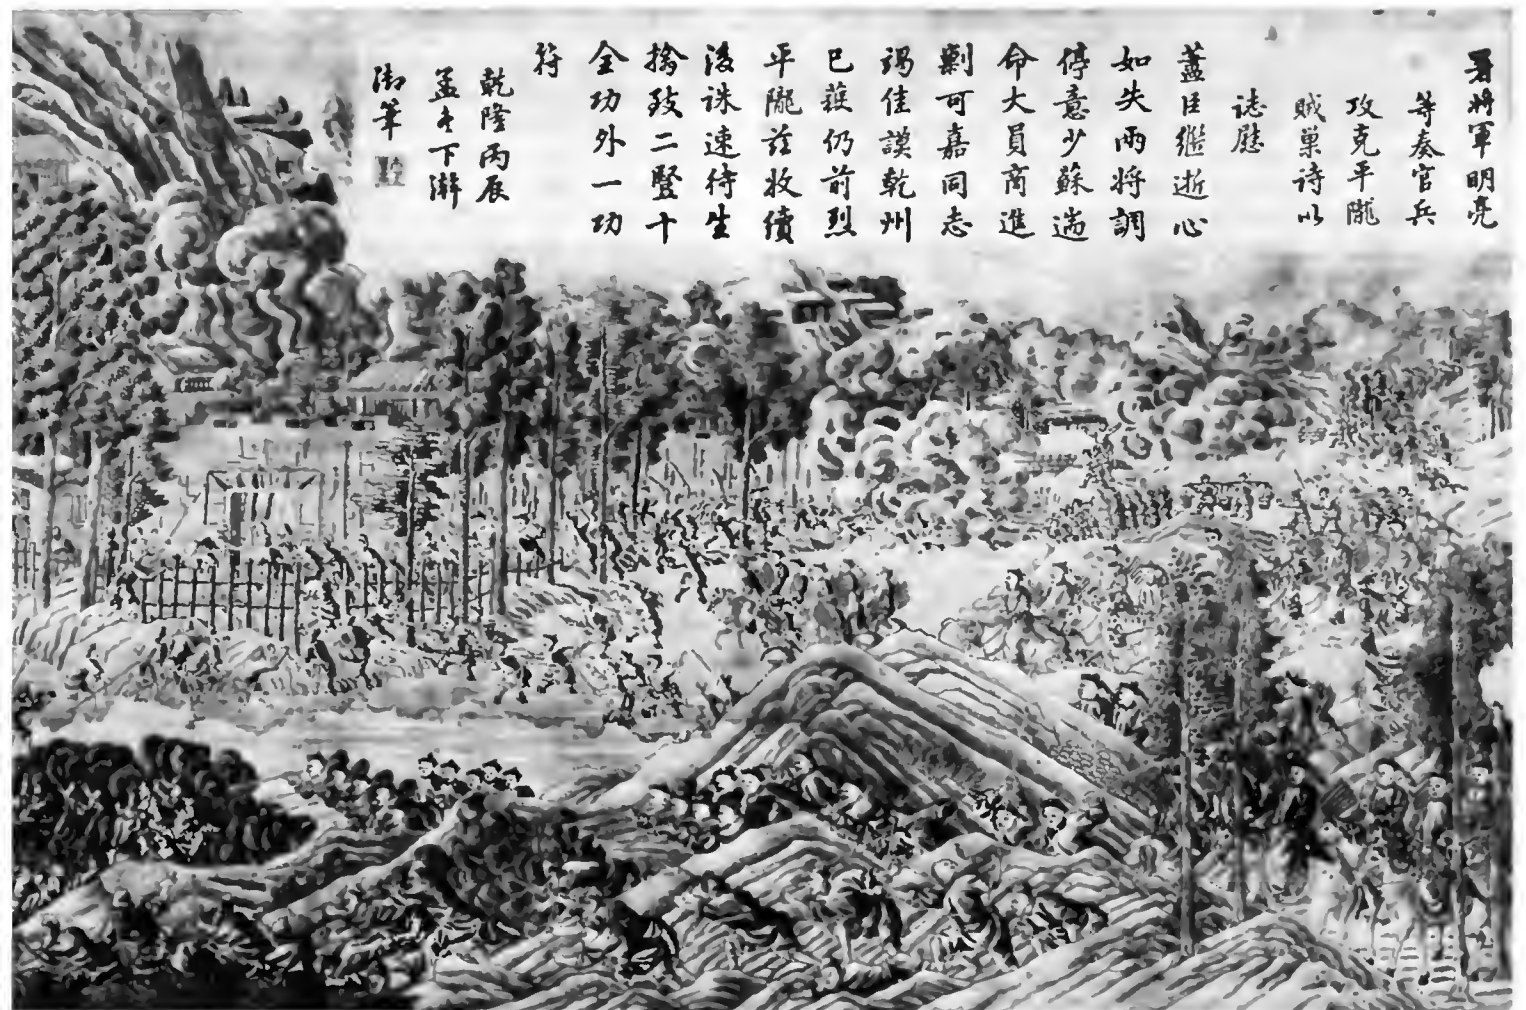 署將軍明亮
等奏官兵
攻克平隴
賊巢詩以
誌慰
藎臣繼逝心
如失兩將調
停意少蘇遄
命大員商進
剿可嘉同志
竭佳謨乾州
已仍前烈
平隴茲收續
後誅速待生
擒致二豎十
全功外一功
符
乾隆丙辰
孟冬下澣
御筆